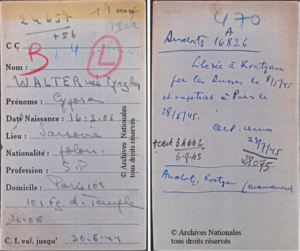 24657
+56
C C
B
L
Nom :
WALTER née
Prénoms : Gysra
Date Naissance 16-3-08
Lieu : Varsovie
Nationalité : polon.
Profession : S.P
Domicile : Paris 10e
107 Fg d. Temple
C. I. val. jusqu' 30.6.44
© Archives Nationales
tous droits réservés
470
A
16826
Libérée à Kratzau
par les Russes le 8/5/45
et rapatriée à Paris le
28/5/45.
+ cert 3A662
6-9-45
28/7/45
28075
Kratzau
© Archives Nationales
tous droits réservés